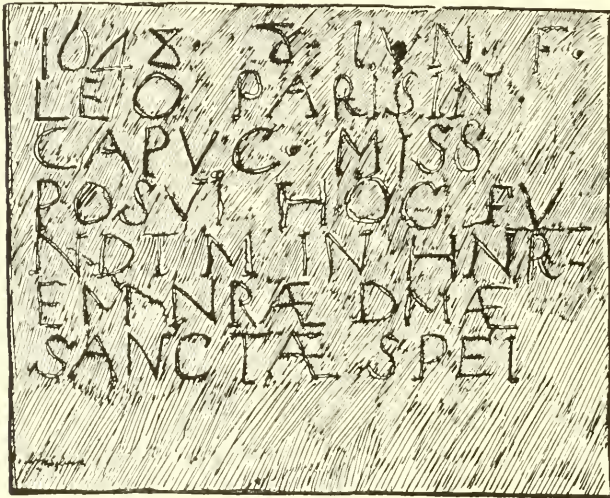 1648 · 8 IVN. F.
LEO PARISIN
CAPVC · MISS
POSVI HOC FV
NDTM IN HNR-
EM NRÆ DMÆ
SANCTÆ SPEI